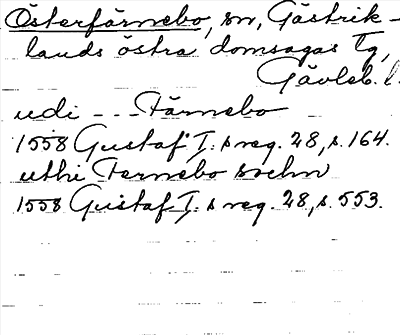 Österfärnebo, sn, Gästrik-
lands östra domsagas tg,
Gävleb. l.
udi --- Färnebo
1558 Gustaf I:s reg. 28, s. 164.
uthi Fernebo sochn
1558 Gustaf I:s reg. 28, s. 553.